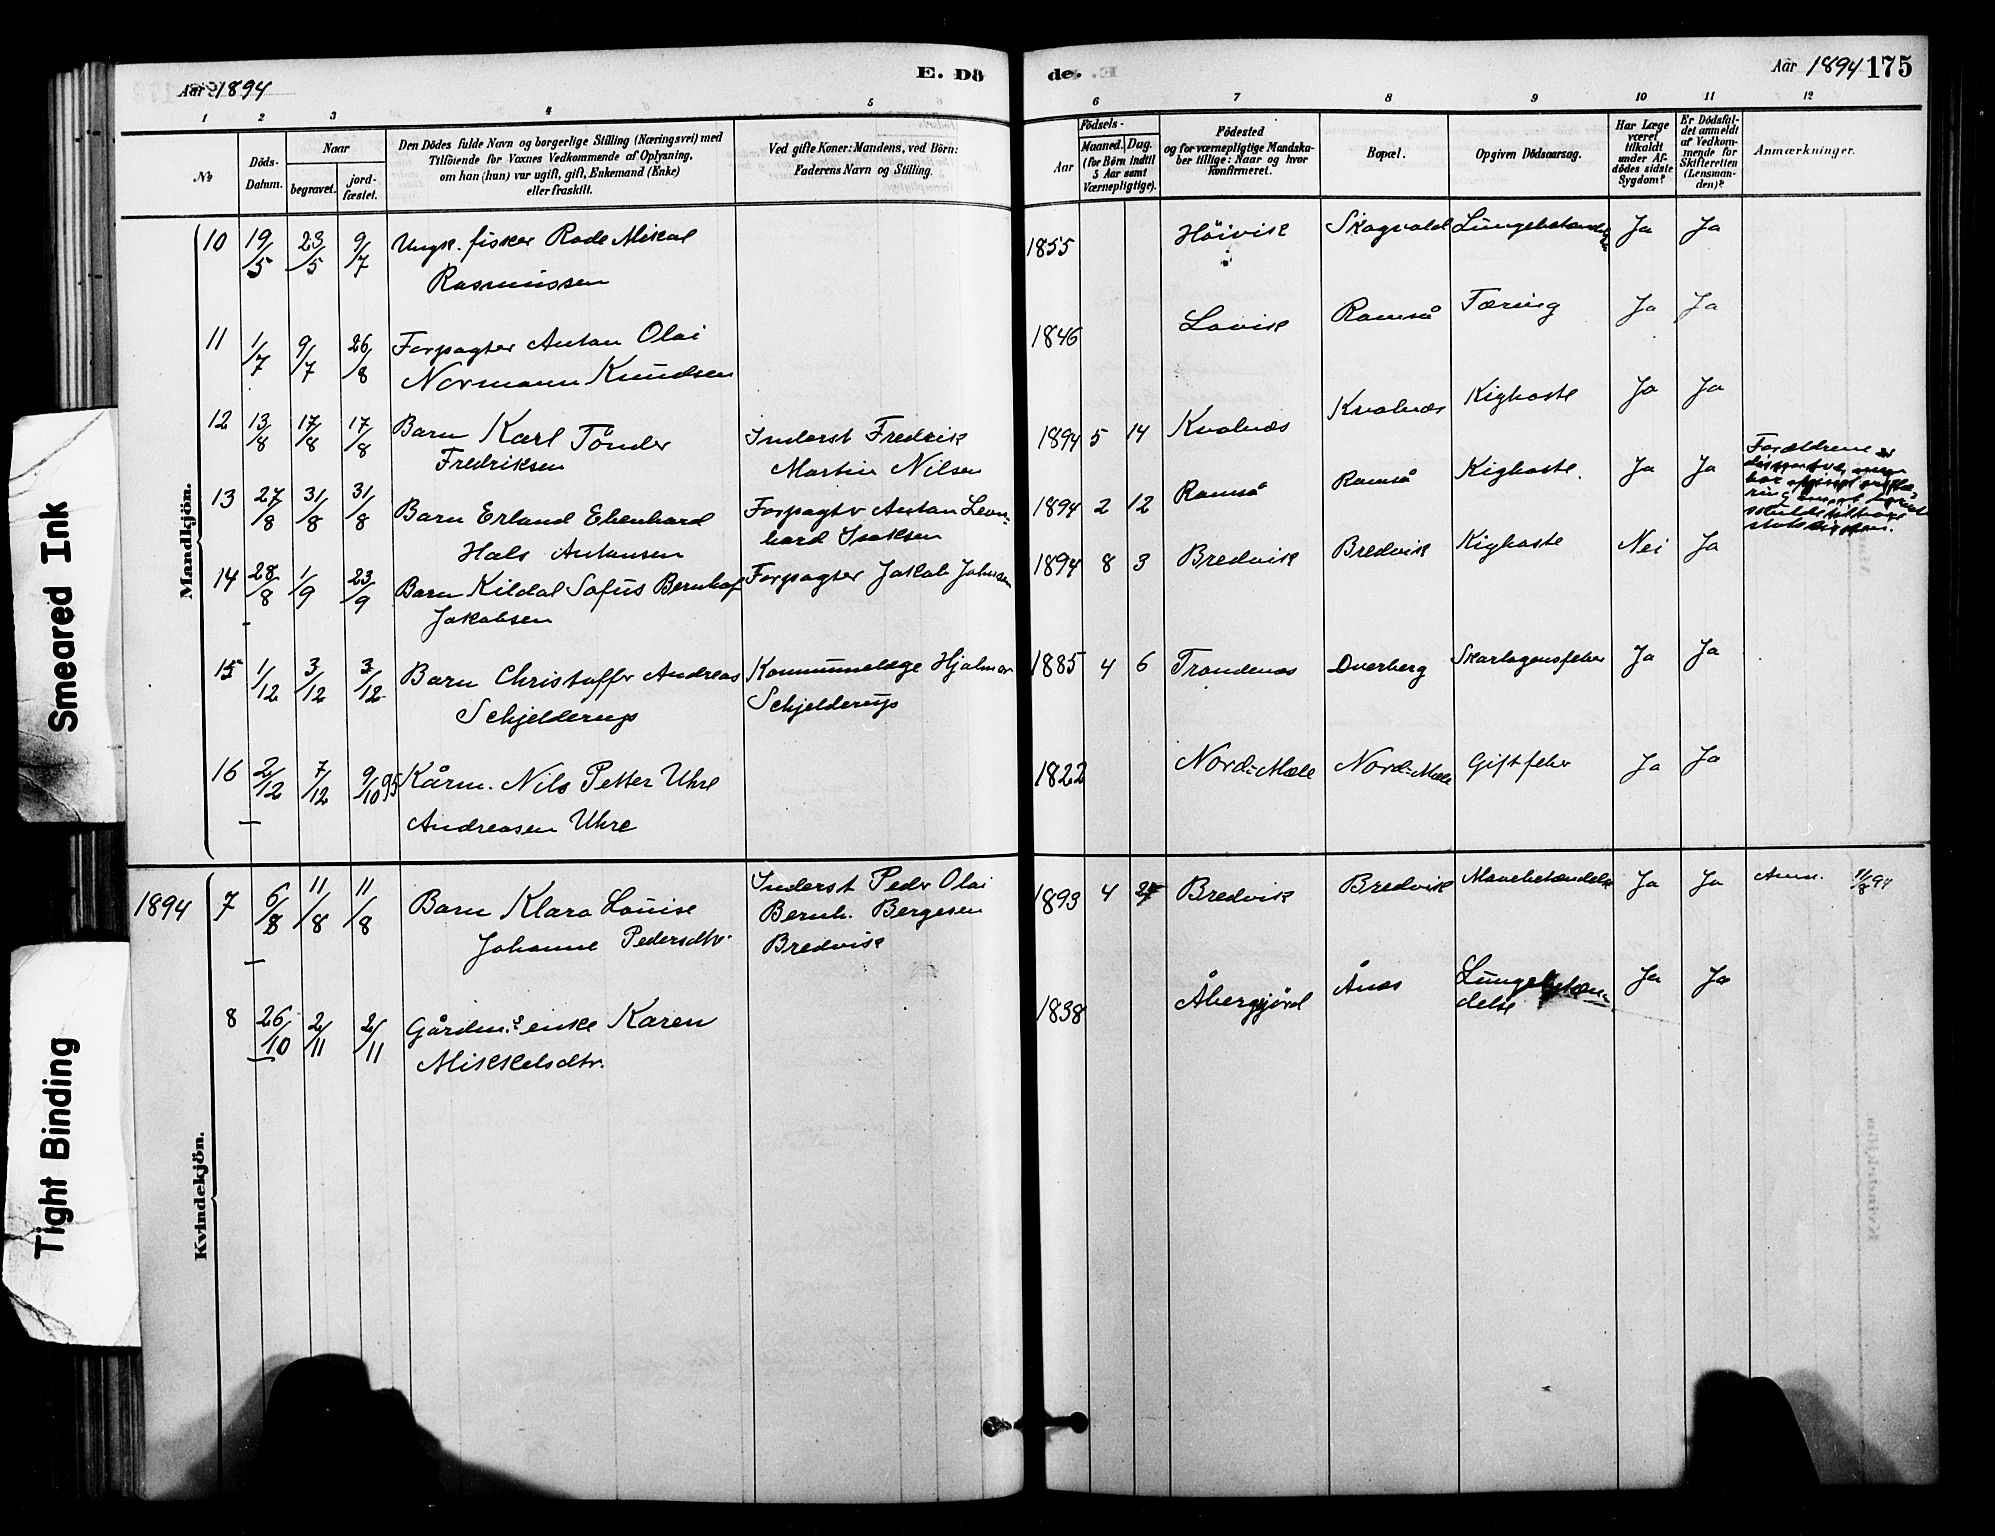 Aar 1894
E. Dö
de.
Aar 1894 175
1 2 3 4 5 6 7 8 9 10 11 12
No
Döds-
Datum.
Naar
begravet.
jord-
fæstet.
Den Dödes fulde Navn og borgerlige Stilling (Næringsvei) med
Tilföiende for Voxnes Vedkommende af Oplysning,
om han (hun) var ugift, gift, Enkemand (Enke)
eller fraskilt.
Ved gifte Koner: Mandens, ved Börn:
Faderens Navn og Stilling.
Födsels-
Aar
Maaned. Dag.
(for Börn indtil
5 Aar samt
Værnepligtige).
Födested
og for værnepligtige Mandska-
ber tillige: Naar og hvor
konfirmeret.
Bopæl.
Opgiven Dödsaarsag.
Har Læge
været
tilkaldt
under Af-
dödes sidste
Sygdom?
Er Dödsfal-
det anmeldt
af Vedkom-
mende for
Skifteretten
(Lensman-
den)?
Anmærkninger.
Mandkjön.
10 19/5 23/5 9/7 Ungk. fisker Rade Mikal
Rasmussen
1855 Höivik Skogvold Lungebetændelse Ja Ja
11 1/7 9/7 26/8 Forpagter Anton Olai
Normann Knudsen
1846 Lovik Ramså Tæring Ja Ja
12 13/8 17/8 17/8 Barn Karl Tönder
Fredriksen
Inderst Fredrik
Martin Nilsen
1894 5 14 Kvalnæs Kvalnæs Kighoste Ja Ja
13 27/8 31/8 31/8 Barn Erland Ebenhard
Hals Antonsen
Forpagter Anton Leon-
hard Isaksen
1894 2 12 Ramså Ramså Kighoste. Ja Ja
Forældrene er
14 28/8 1/9 23/9 Barn Kildal Sofus Bernhof
Jakobsen
Forpagter Jakob Johnsen
1894 8 3 Bredvik Bredvik Kighoste Nei Ja
15 1/12 3/12 3/12 Barn Christoffer Andreas
Schjelderup
Kommunelæge Hjalmar
Schjelderup
1885 4 6 Trondenæs Dverberg Skarlagensfeber Ja Ja
16 2/12 7/12 9/10 95 Kårm. Nils Petter Uhre
Andreasen Uhre
1822 Nord-Mæle Nord-Mæle Giftfeber Ja Ja
Kvindekjön.
1894 7 6/8 11/8 11/8 Barn Klara Louise
Johanne Pedersdtr.
Inderst Peder Olai
Bernh. Bergesen
Bredvik
1893 4 27 Bredvik Bredvik Mavebetændelse Ja Ja Anm. 11/8 94
8 26/10 2/11 2/11 Gårdm.s enke Karen
Mikkelsdtr.
1838 Åbergjörd Ånæs Lungebetæn-
delse
Ja Ja
Smeared Ink
Tight Binding